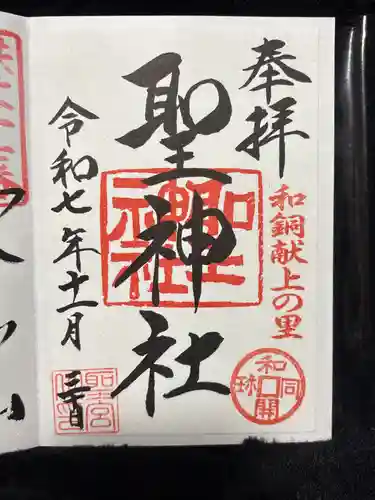 奉拝
和銅献上の里
和同開珎
聖神社
聖神社
令和七年十一月三日